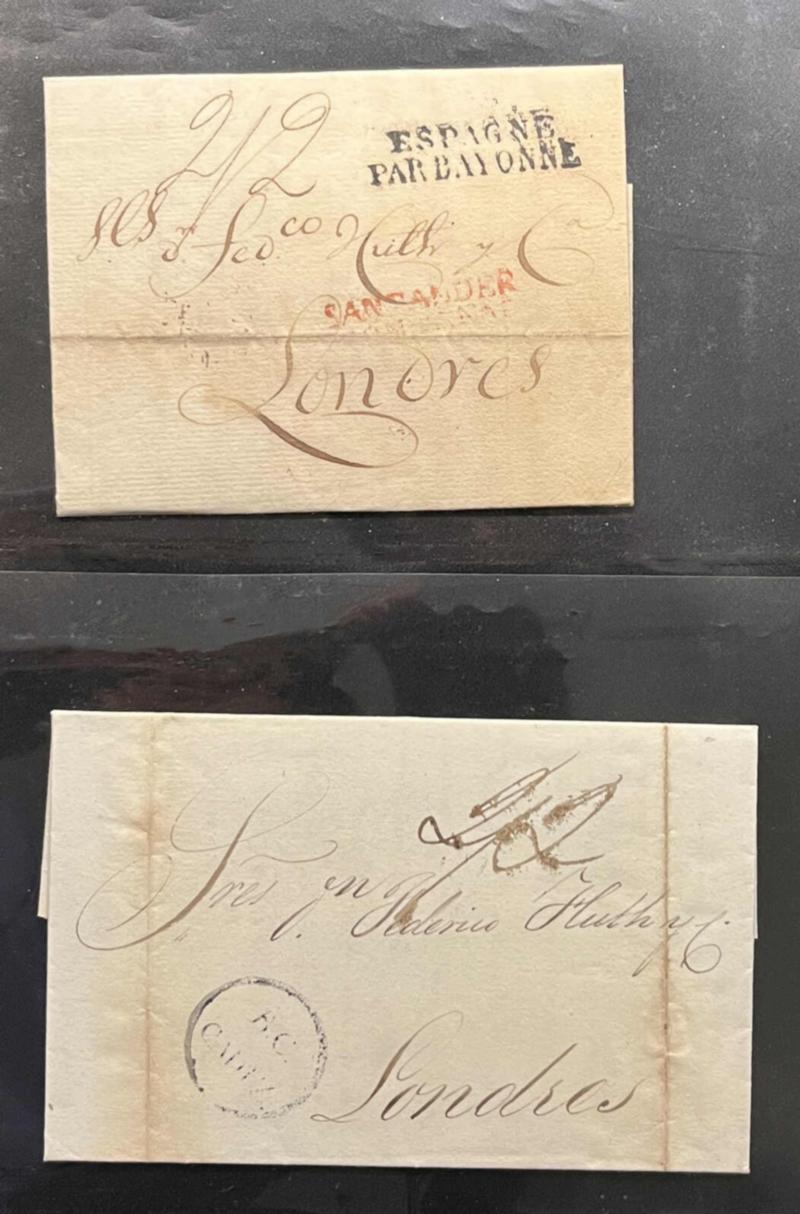 2/2
ESPAGNE
PAR BAYONNE
Sres Dn Fedco Huth y Ca
SANTANDER
Londres
2/2
Sres Dn Federico Huth y C.
B.C.
CADIZ
Londres